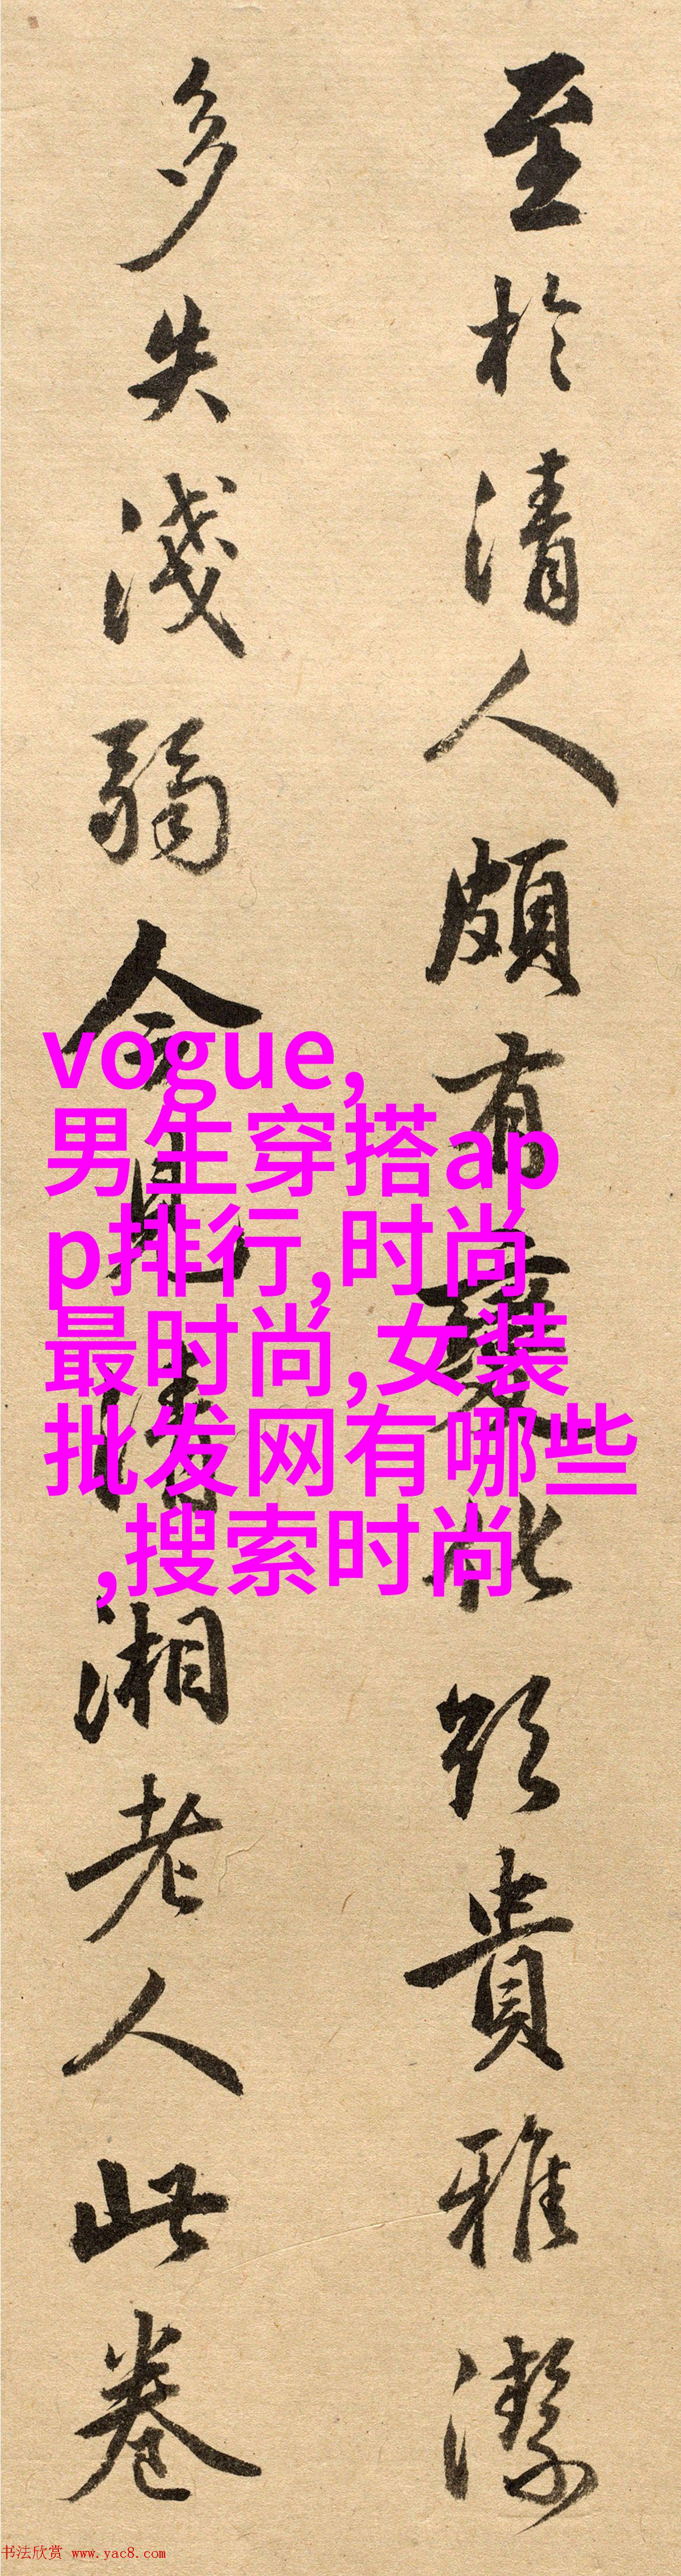 至於清人頗有變化貴雅潔
多失淺弱今見清湘老人此卷
vogue,
男生穿搭ap
p排行,时尚
最时尚,女装
批发网有哪些
,搜索时尚
书法欣赏 www.yac8.com